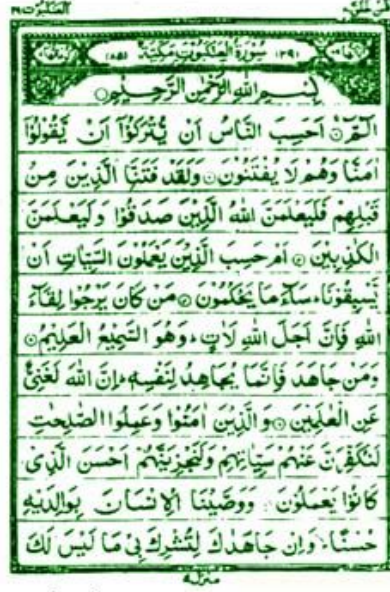 العنكبوت ٢٩
امن خلق ٢٠
(٢٩) سُورَةُ الْعَنْكَبُوتِ مَكِّيَّةٌ (٨٥)
بِسْمِ اللهِ الرَّحْمٰنِ الرَّحِيْمِ
الٓمّٓ اَحَسِبَ النَّاسُ اَنْ يُّتْرَكُوْٓا اَنْ يَّقُوْلُوْٓا
اٰمَنَّا وَهُمْ لَا يُفْتَنُوْنَ وَلَقَدْ فَتَنَّا الَّذِيْنَ مِنْ
قَبْلِهِمْ فَلَيَعْلَمَنَّ اللهُ الَّذِيْنَ صَدَقُوْا وَلَيَعْلَمَنَّ
الْكٰذِبِيْنَ اَمْ حَسِبَ الَّذِيْنَ يَعْمَلُوْنَ السَّيِّاٰتِ اَنْ
يَّسْبِقُوْنَا سَآءَ مَا يَحْكُمُوْنَ مَنْ كَانَ يَرْجُوْا لِقَآءَ
اللهِ فَاِنَّ اَجَلَ اللهِ لَاٰتٍ وَهُوَ السَّمِيْعُ الْعَلِيْمُ
وَمَنْ جَاهَدَ فَاِنَّمَا يُجَاهِدُ لِنَفْسِهٖ اِنَّ اللهَ لَغَنِيٌّ
عَنِ الْعٰلَمِيْنَ وَالَّذِيْنَ اٰمَنُوْا وَعَمِلُوا الصّٰلِحٰتِ
لَنُكَفِّرَنَّ عَنْهُمْ سَيِّاٰتِهِمْ وَلَنَجْزِيَنَّهُمْ اَحْسَنَ الَّذِيْ
كَانُوْا يَعْمَلُوْنَ وَوَصَّيْنَا الْاِنْسَانَ بِوَالِدَيْهِ
حُسْنًا وَاِنْ جَاهَدٰكَ لِتُشْرِكَ بِيْ مَا لَيْسَ لَكَ
منزل ٥